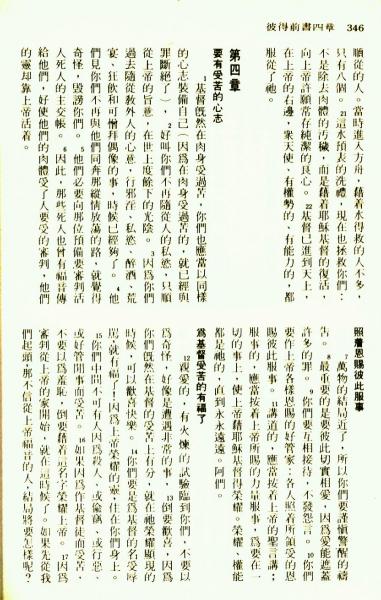 彼得前書四章 346
順從的人。當時進入方舟，藉着水得救的人不多，
只有八個。21這水預表的洗禮，現在也拯救你們：
不是除去肉體的汚穢，而是藉着耶穌基督的復活，
向上帝許願常存純潔的良心。22基督已進到天上，
在上帝的右邊，衆天使、有權勢的、有能力的，都
服從了祂。
第四章
要有受苦的心志
1基督旣然在肉身受過苦，你們也應當以同樣
的心志裝備自己（因爲在肉身受過苦的，就已經與
罪斷絕了），2好叫你們不隨從人的私慾，只順
從上帝的旨意，在世上度餘下的光陰。3因爲你們
過去隨從敎外人的心意，行邪淫、私慾、醉酒、荒
宴、狂飲和可憎拜偶像的事，時候已經夠了。4他
們見你們不再與他們同奔那縱情放蕩的路，就覺得
奇怪，毀謗你們。5他們必要向那位預備要審判活
人死人的主交帳。6因此，那些死人也曾有福音傳
給他們，好使他們的肉體受了人要受的審判，他們
的靈却靠上帝活着。
照着恩賜彼此服事
7萬物的結局近了，所以你們要謹愼警醒的禱
告。8最重要的是要彼此切實相愛，因爲愛能遮蓋
許多的罪。9你們要互相接待，不發怨言。10你們
要作上帝各樣恩賜的好管家，各人照着所領受的恩
賜彼此服事。11講道的，應當按着上帝的聖言講；
服事的，應當按着上帝所賜的力量服事，爲要在一
切的事上，使上帝藉耶穌基督得榮耀。榮耀、權能
都是祂的，直到永永遠遠。阿們。
爲基督受苦的有福了
12親愛的，有火煉的試驗臨到你們，不要以
爲奇怪，好像是遭遇非常的事，13倒要歡喜，因爲
你們旣然在基督的受苦上有分，就在祂榮耀顯現的
時候，可以歡喜快樂。14你們要是爲基督的名受辱
駡，就有福了！因爲上帝榮耀的靈，住在你們身上。
15你們中間不可有人因爲殺人、或偷竊、或行惡、
或好管閒事而受苦。16如果因爲作基督徒而受苦，
不要以爲羞恥，倒要藉着這名字榮耀上帝。17因爲
審判從上帝的家開始，就在這時候了。如果先從我
們起頭，那不信從上帝福音的人，結局將要怎樣呢？